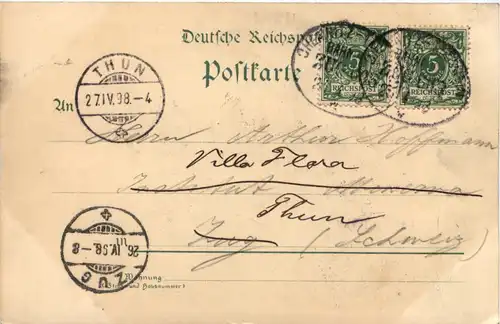 Deutsche Reichspost
Postkarte
THUN
27.IV.98.-4
5
REICHSPOST
5
REICHSPOST
An Herrn Arthur Hoffmann
Villa Flora
Institut Minerva
Thun
Zug (Schweiz)
26.IV.98.-8
ZUG
Wohnung
(Straße und Hausnummer)